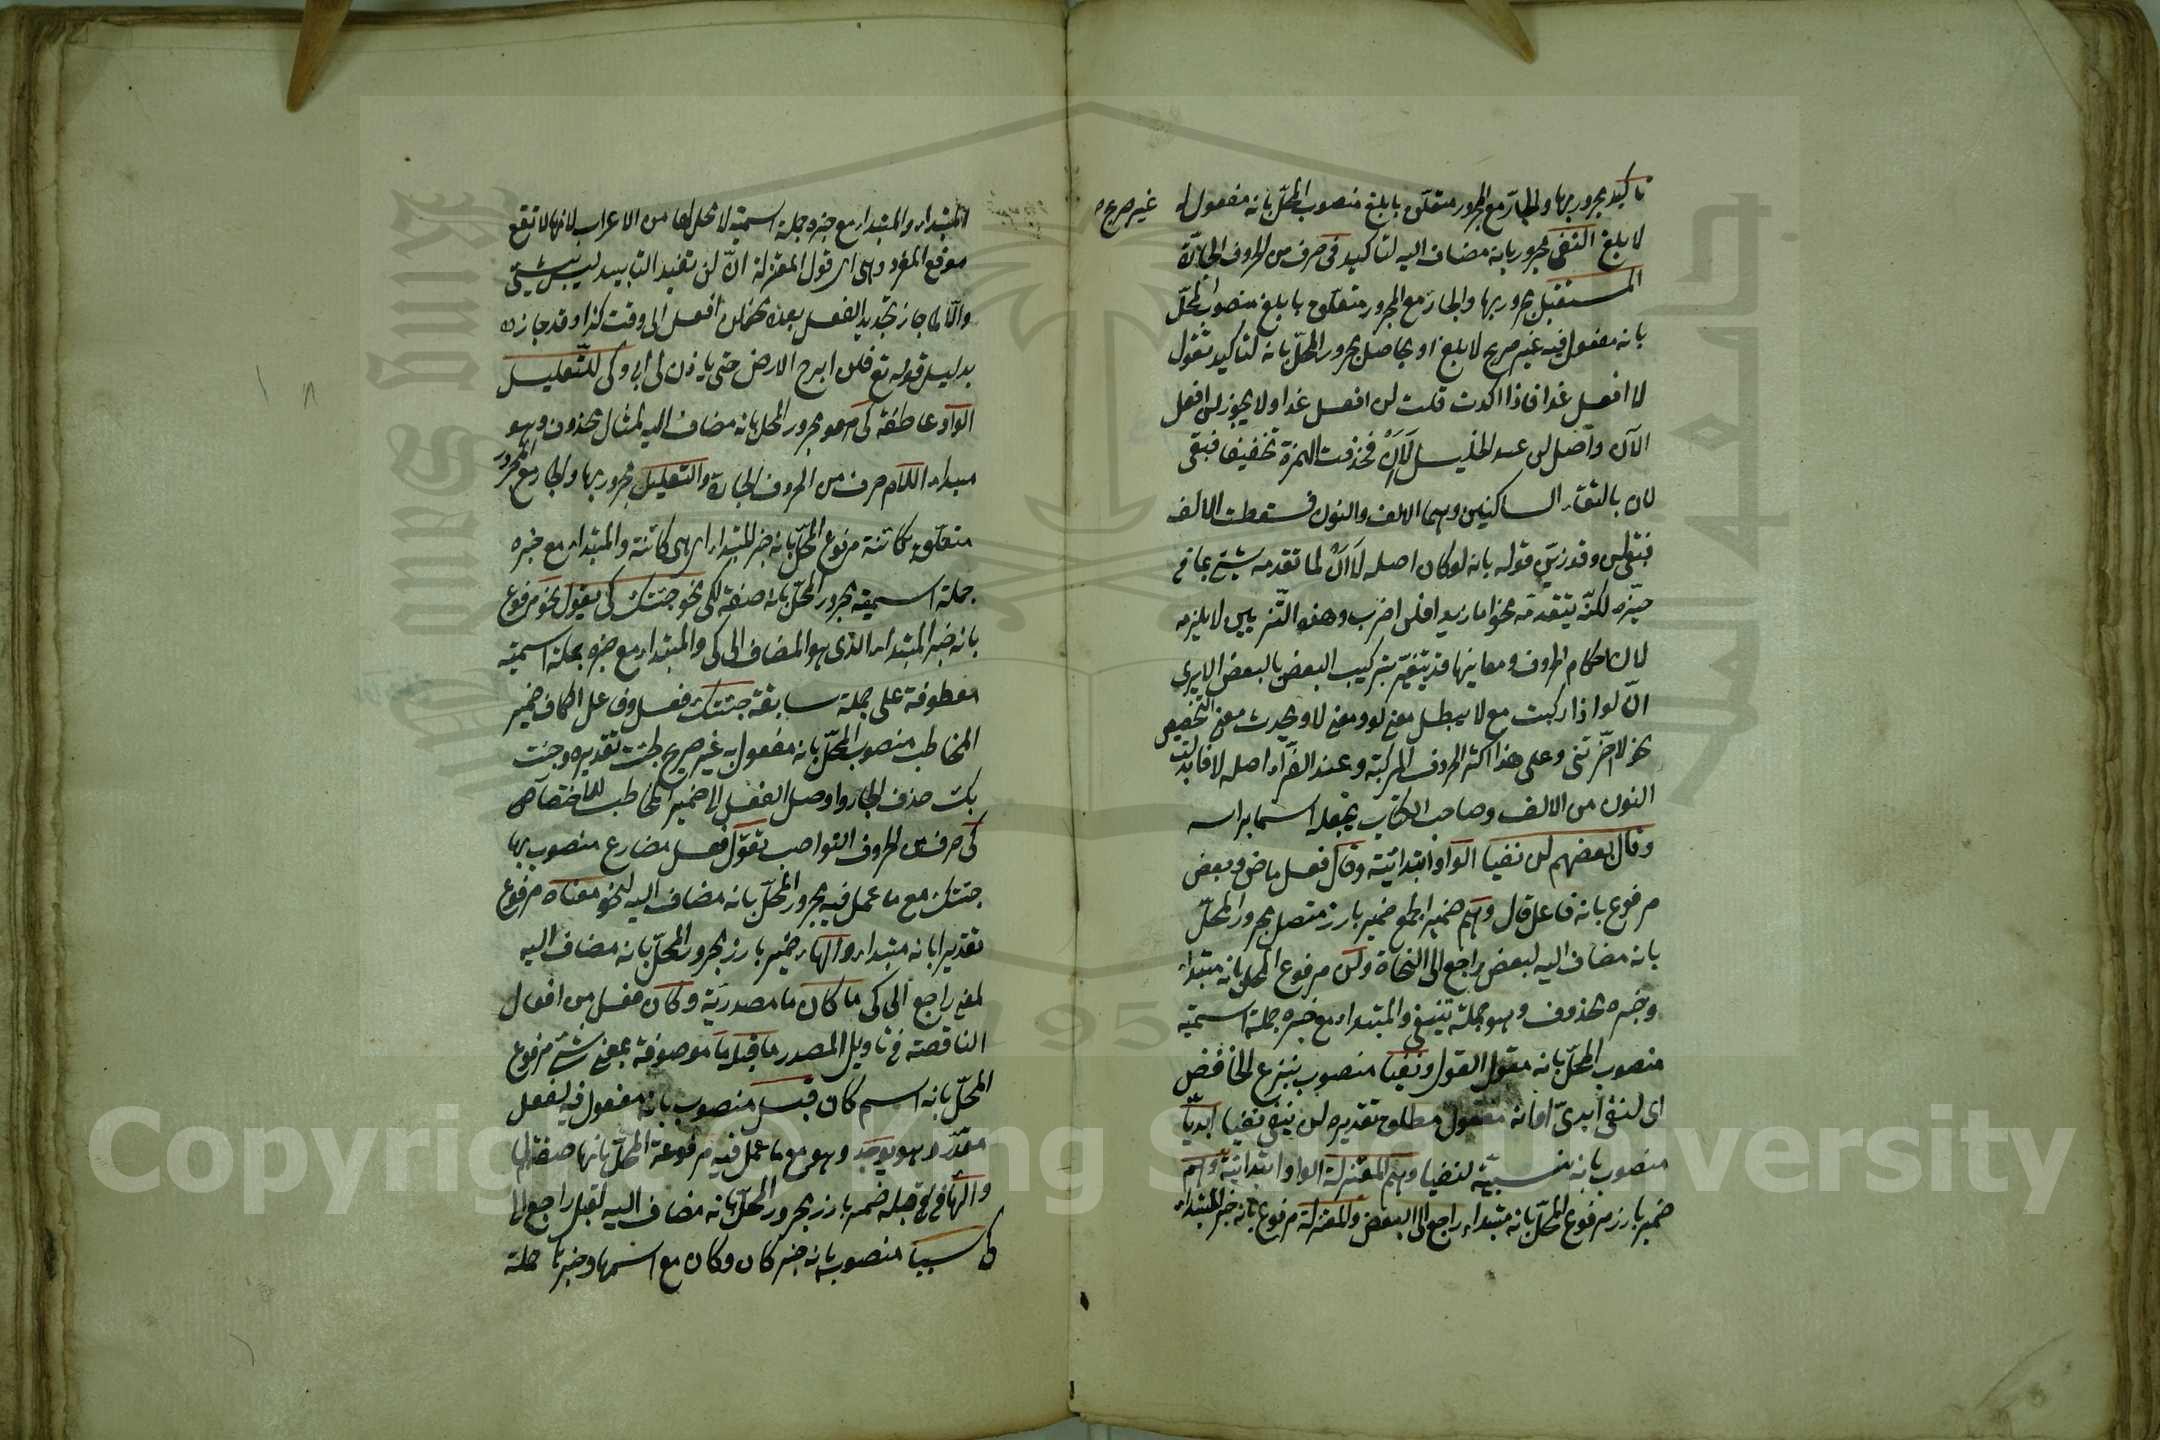 تاكيد مجرور بها والجار مع المجرور متعلق بابلغ منصوب المحل بانه مفعول به غير صريح
لابلغ النفى مجرور بانه مضاف اليه لتاكيد فى حرف من الحروف الجارة
المستقبل مجرور بها والجار مع المجرور متعلق بابلغ منصوب المحل
بانه مفعول فيه غير صريح لابلغ او بحاصل مجرور المحل بانه لتاكيد تقول
لا افعل غدا فاذا اكدت قلت لن افعل غدا ولا يجوز لن افعل
الآن واصل لن عند الخليل لا ان فحذفت الهمزة تخفيفا فبقى
لان بالتقاء الساكنين وهما الالف والنون فسقطت الالف
فبقى لن وقد زيف قوله بانه لو كان اصله لا ان لما تقدمه شيئ مما فى
حيزه لكنه يتقدمه نحو اما زيدا فلن اضرب وهذا التزييف لا يلزمه
لان احكام الحروف ومعانيها قد يتغير بتركيب البعض بالبعض الا يرى
ان لو اذا ركبت مع لا يبطل معنى لو ومعنى لا ويحدث معنى التحضيض
نحو لولا اخرتنى وعلى هذا اكثر الحروف المركبة وعند الفراء اصله لا فابدلت
النون من الالف وصاحب الكتاب يجعله اسما براسه
وقال بعضهم لن نفيا الواو ابتدائية وقال فعل ماض وبعض
مرفوع بانه فاعل قال وهم ضمير الجمع ضمير بارز متصل مجرور المحل
بانه مضاف اليه لبعض راجع الى النحاة ولن مرفوع المحل بانه مبتداء
وخبره محذوف وهو جملة تنفى والمبتداء مع خبره جملة اسمية
منصوب المحل بانه مقول القول ونفيا منصوب بنزع الخافض
اى لنفى ابدى او انه مفعول مطلق تقديره لن ينفى نفيا ابديا
منصوب بانه نسبية لنفيا وهم المعتزلة الواو ابتدائية وهم
ضمير بارز مرفوع المحل بانه مبتداء راجع الى البعض والمعتزلة مرفوع بانه خبر المبتداء
المبتداء والمبتداء مع خبره جملة اسمية لا محل لها من الاعراب لانها لا تقع
موقع المفرد وهى اى قول المعتزلة ان لن تفيد التابيد ليس بشيئ
والا لما جاز تحديد الفعل بعده نحو لن افعل الى وقت كذا وقد جاز
بدليل قوله تع فلن ابرح الارض حتى ياذن لى ابى وكى للتعليل
الواو عاطفة كى هو مجرور المحل بانه مضاف اليه لمثال محذوف وهو
مبتداء اللام حرف من الحروف الجارة والتعليل مجرور بها والجار مع المجرور
متعلق بكائنة مرفوع المحل بانه خبر المبتداء اى هى كائنة والمبتداء مع خبره
جملة اسمية مجرور المحل بانه صفة لكى نحو جئتك كى تقول نحو مرفوع
بانه خبر المبتداء الذى هو المضاف الى كى والمبتداء مع خبره جملة اسمية
معطوفة على جملة سابقة جئتك فعل وفاعل الكاف ضمير
المخاطب منصوب المحل بانه مفعول به غير صريح لجئت تقديره وجئت
بك حذف الجار واوصل الفعل الى ضمير المخاطب للاختصاص
كى حرف من الحروف النواصب تقول فعل مضارع منصوب بها
جئتك مع ما عمل فيه مجرور المحل بانه مضاف اليه لنحو معناه مرفوع
تقديرا بانه مبتداء والهاء ضمير بارز مجرور المحل بانه مضاف اليه
لمعنى راجع الى كى ما كان ما مصدرية وكان فعل من افعال
الناقصة فى تاويل المصدر ما قبل ما موصوفة بمعنى شئ مرفوع
المحل بانه اسم كان قبل منصوب بانه مفعول فيه لفعل
مقدر وهو يوجد وهو مع ما عمل فيه مرفوعة المحل بانها صفة لها
والها فى قبله ضمير بارز مجرور المحل بانه مضاف اليه لقبل راجع الى
كى سببا منصوب بانه خبر كان وكان مع اسمها وخبرها جملة
Copyright © King Saud University
1957